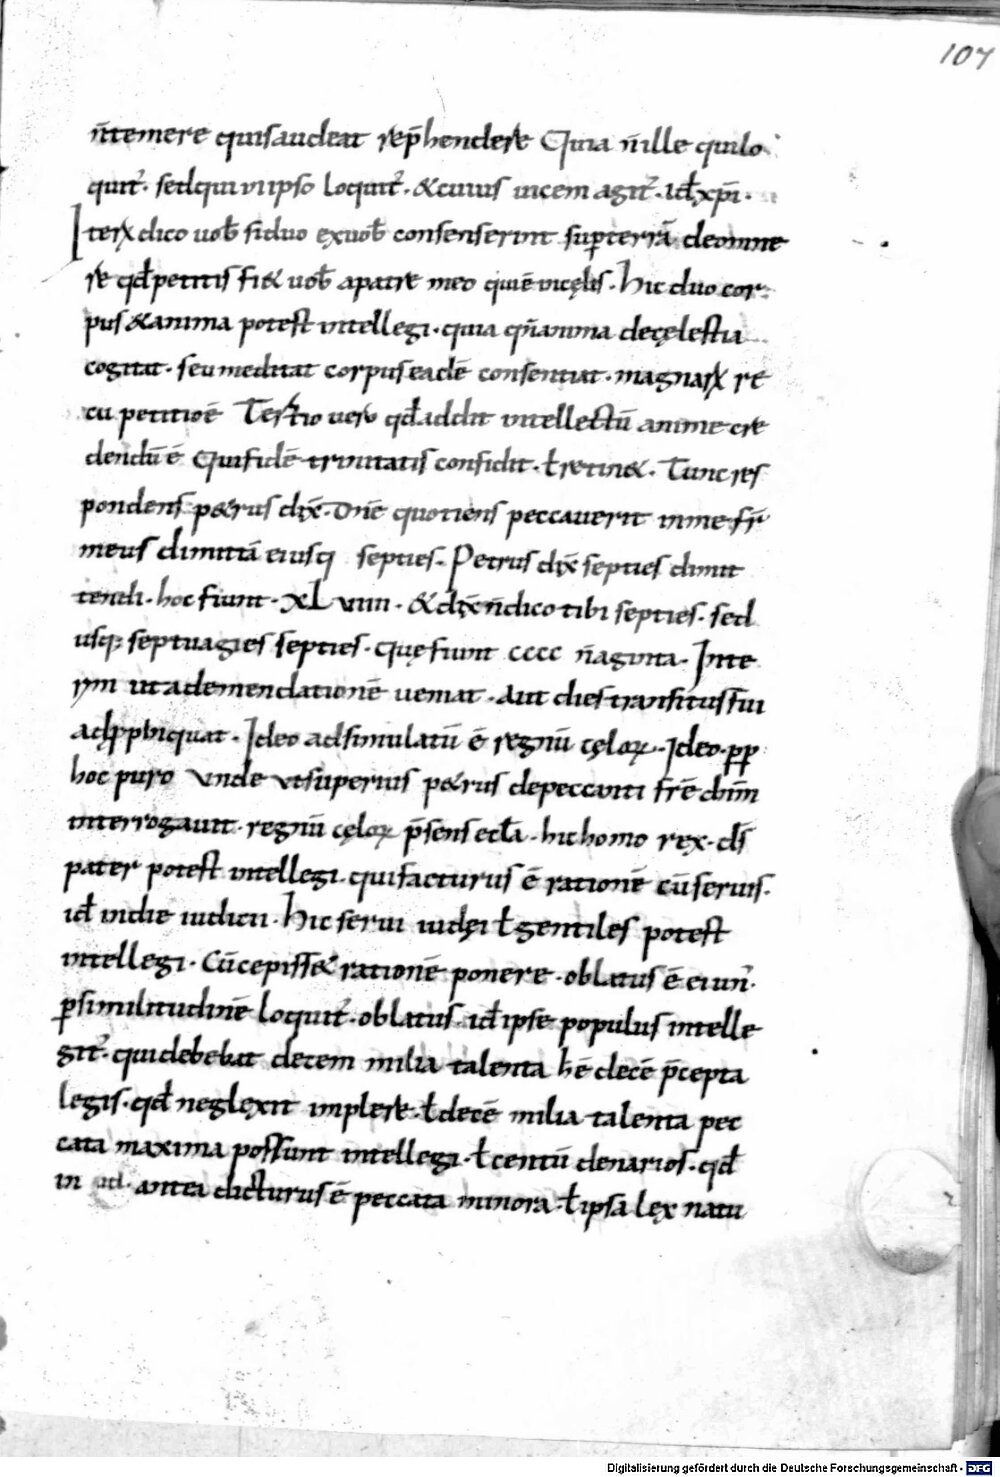 107
n̄temere quisaudeat rep̄hendere Quia n̄ille quilo
quit᷑. sedqui in ipso loquit᷑. &cuius uicem agit᷑. id̄ xp̄i.
Iterū dico uob̄ siduo exuob̄ consenserint sup̄terrā deomne
re qd̄petitis fi& uob̄ apatre meo quiē incęlis. hic duo cor
pus &anima potest intellegi. quia qn̄anima decęlestia
cogitat. seu meditat corpus eadē consentiat. magnarū re
cu petitioē Tertio uero qd̄addit intellectū anime cre
dendū ē Quifidē trinitatis confidit. ł retin&. Tunc res
pondens p&rus dix̄. Dn̄e quotiens peccauerit inme fr̄
meus dimittā ei usq septies. Petrus dix̄ septies dimit
tendi. hoc fiunt. XL viiii. & dix̄ n̄dico tibi septies. sed
usq; septuagies septies. quę fiunt cccc n̄aginta. Inte
rim ut ademendationē ueniat. Aut dies transitus sui
ad,ppinquat. Ideo adsimulatū ē regnū cęloꝝ. Ideo. pp
hoc puto Unde utsuperius p&rus depeccanti frē dn̄m
interrogauit. regnū cęloꝝ p̄sens eccła. hic homo rex. ds̄
pater potest intellegi. quifacturus ē rationē cū seruis.
id̄ indie iudicii. hic serui iudęi ł gentiles potest
intellegi. Cūcepiss& rationē ponere. oblatus ē ei un᷑.
p̄similitudinē loquit᷑. oblatus. id̄ ipse populus intelle
git᷑. quidebebat decem milia talenta h̄ ē decē p̄cepta
legis. qd̄ neglexit implere. ł decē milia talenta pec
cata maxima possunt intellegi. ł centū denarios. qd̄
in antea dicturus ē peccata minora. ł ipsa lex natu
Digitalisierung gefördert durch die Deutsche Forschungsgemeinschaft - DFG